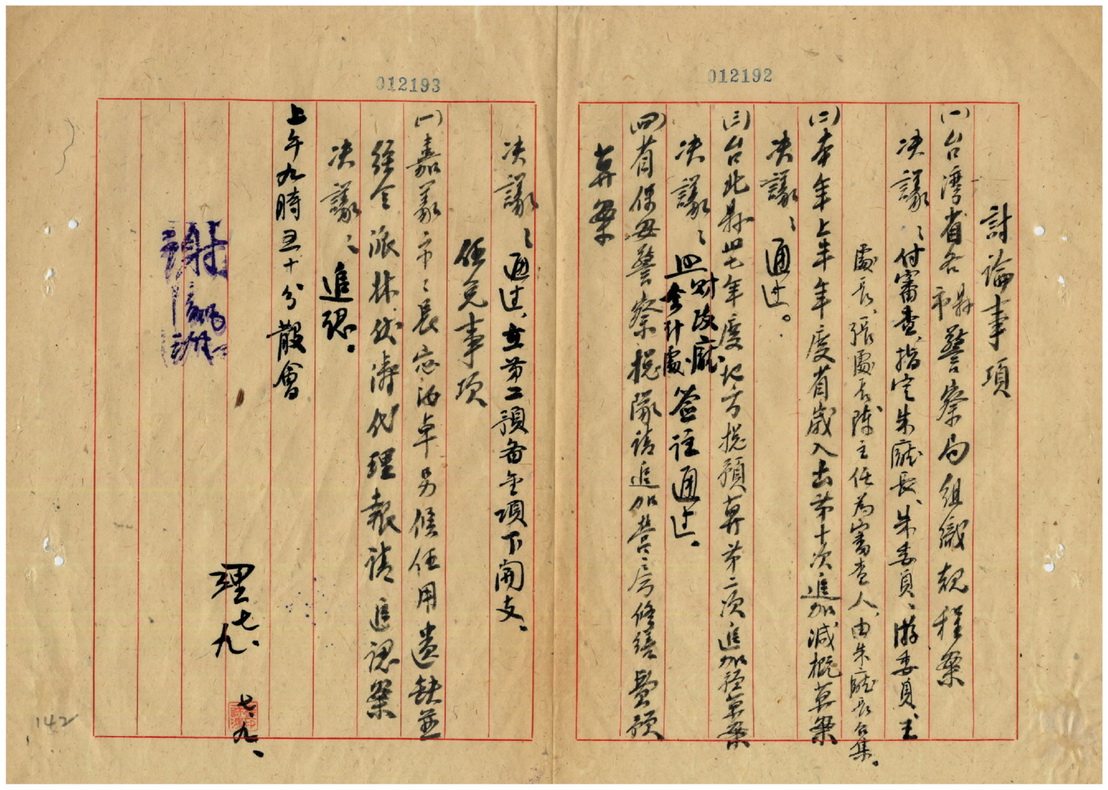 012192
討論事項
(一)台湾省各縣市警察局組織規程案
決議:付審查,指定朱廳長、朱委員、游委員、王
處長、張處長、陳主任為審查人,由朱廳長召集。
(二)本年上半年度省歲入出第十次追加減概算案
決議:通过。
(三)台北縣四七年度地方總預算第二次追加預算案
決議:照財政廳會計處簽註通过。
(四)省保安警察總隊請追加營房修繕費預
算案
012193
決議:通过,在第二預備金項下開支。
任免事項
(一)嘉義市市長宓汝卓另候任用遺缺並
經令派林伏濤代理報請追認案
決議:追認。
上午九時五十分散會
理七、九、
七、九、
142